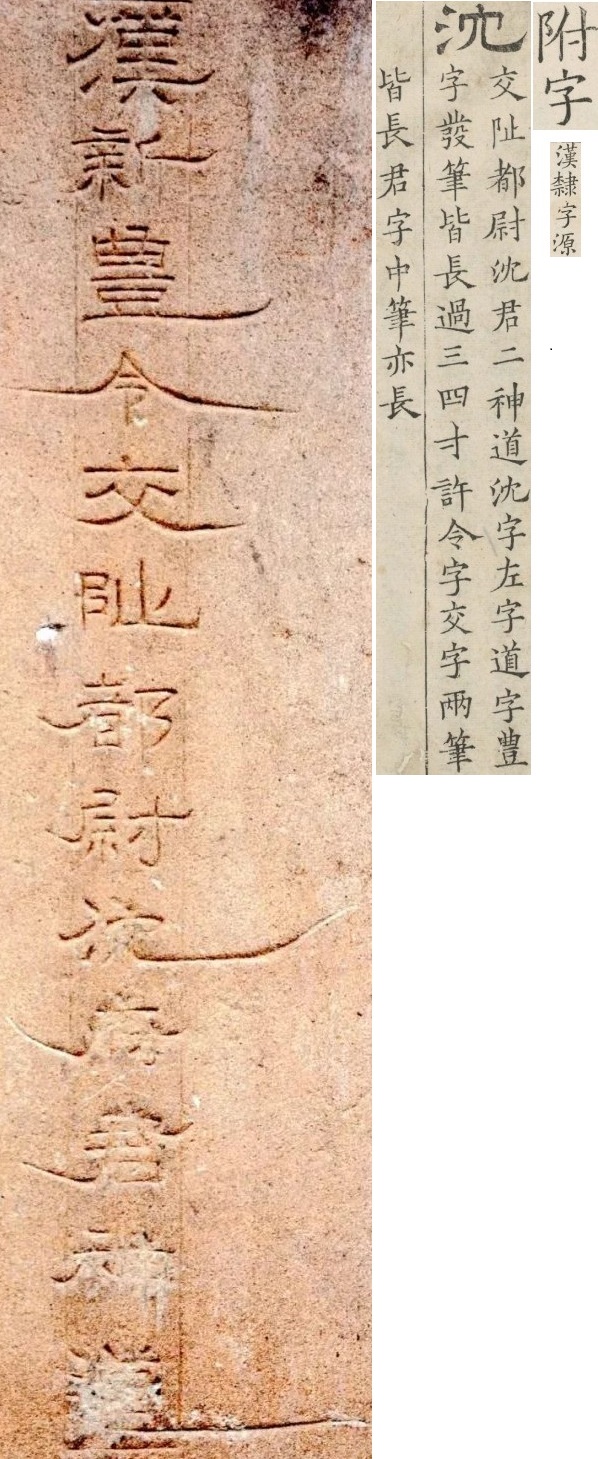 附字
漢隸字源
沈
交阯都尉沈君二神道沈字左字道字豊
字發筆皆長過三四寸許令字交字兩筆
皆長君字中筆亦長
漢新豊令交阯都尉沈府君神道